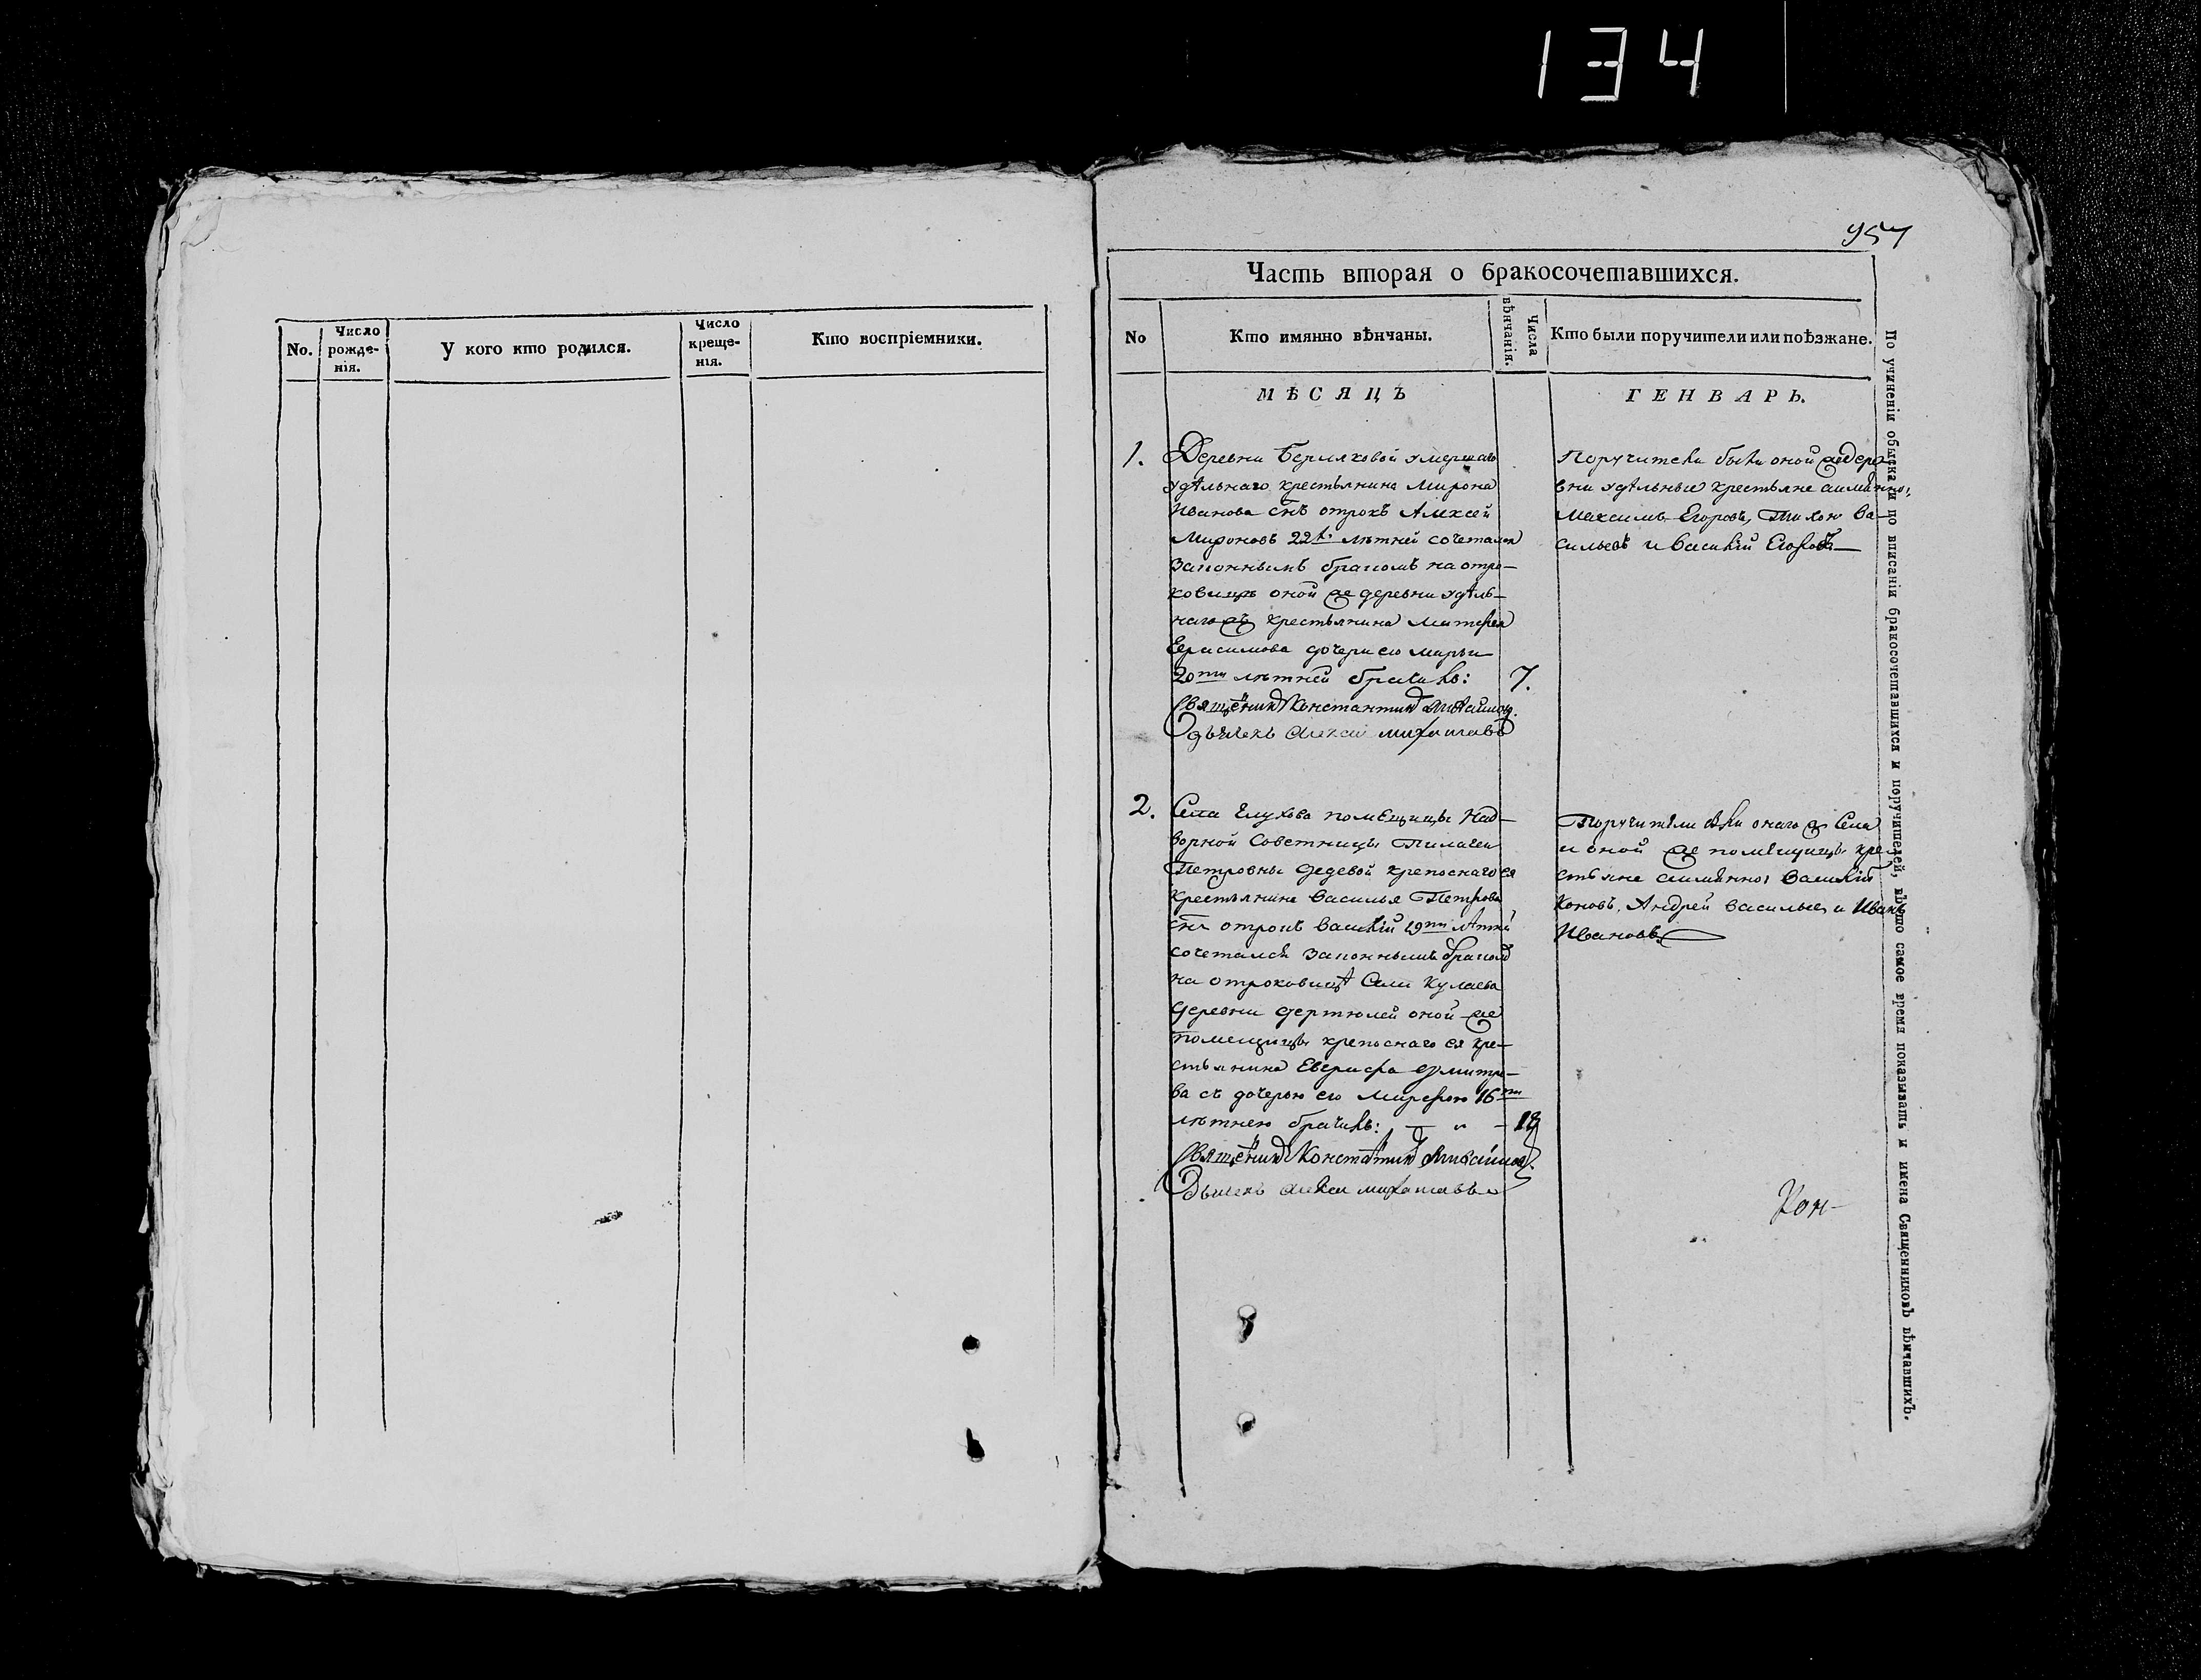 134
957
No.
Число рожденія.
У кого кто родился.
Число крещенія.
Кто воспріемники.
Часть вторая о бракосочетавшихся.
No
Кто имянно вѣнчаны.
Числа вѣнчанія.
Кто были поручители или поѣзжане.
МѢСЯЦЪ
ГЕНВАРЬ.
1.
Деревни умершаго
удѣльнаго крестьянина Мирона
Иванова снъ отрокъ Алексей
Мироновъ 22х. лѣтней сочетался
законнымъ бракомъ на отро-
ковицѣ оной же деревни удѣль-
наго крестьянина
Ерасимова дочери его Марьи
20ти лѣтней
7.
Священникъ Константинъ Михайловъ
Дьячекъ Алексей
Поручители были оной же дере-
вни удѣльные крестьяне аимянно,
Максимъ Егоровъ, Тихон Ва-
сильевъ и Василій Егоровъ
2.
Села Глухова помѣщицы Над-
ворной Советницы Пилагеи
Петровны Дедевой крепоснаго ея
крестьянина Василья Петрова
снъ отрокъ Василій 19ти лѣтній
сочетался законнымъ бракомъ
на отроковицѣ Села Кулаева
деревни оной же
помещицы крепоснаго ея кре-
стьянина Дмитре-
ва съ дочерью его 16ти
лѣтнею
18
Священникъ Константинъ Михайловъ
Дьячекъ Алексей
Поручители были онаго ж Села
и оной же помѣщицы кре-
стьяне аимянно, Василій
Коновъ, Андрей Васильев, и Иванъ
Ивановъ.
Кон-
По учиненіи обыска и по вписаніи бракосочетавшихся и поручителей, въ то самое время показывать и имена Священниковъ вѣнчавшихъ.